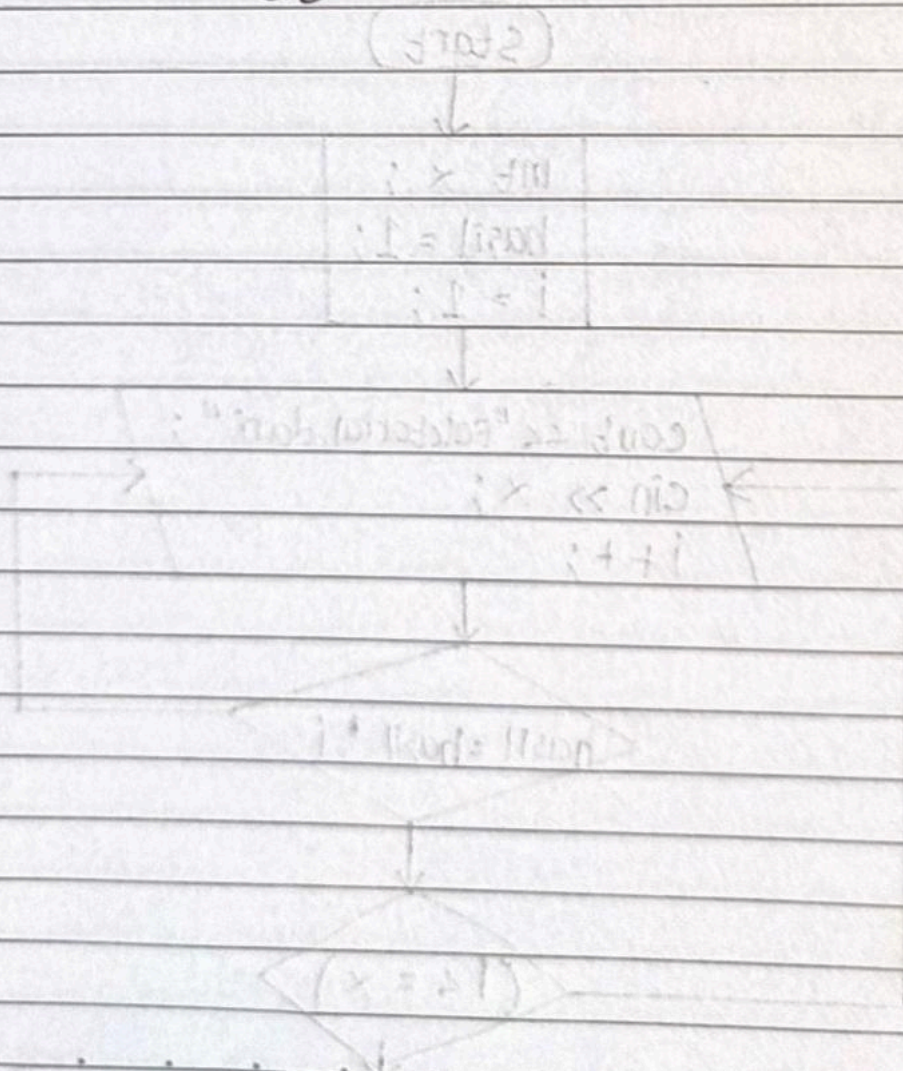 (start)
int x ;
hasil = 1 ;
i = 1 ;
cout << "Faktorial dari" ;
cin >> x ;
i++ ;
hasil = hasil * i
(i <= x)